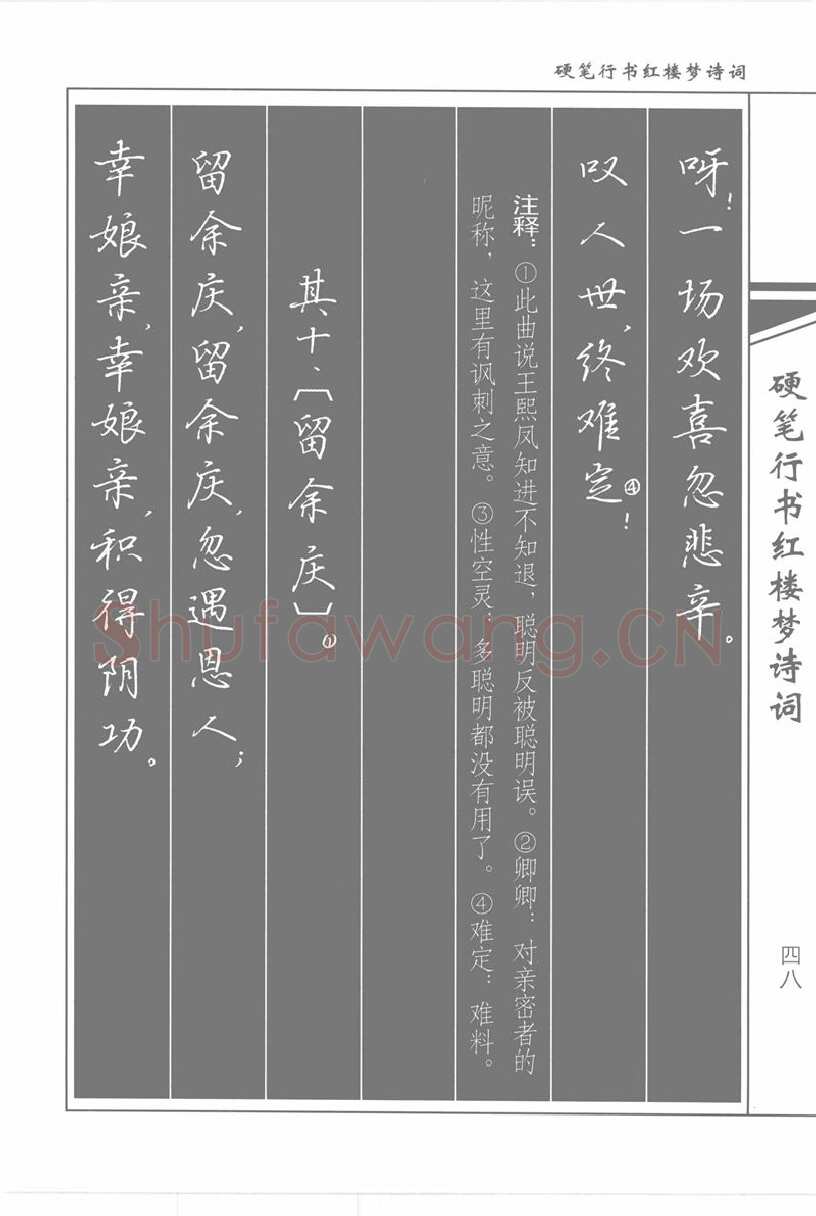 硬笔行书红楼梦诗词
呀！一场欢喜忽悲辛。
叹人世，终难定④！
注释：①此曲说王熙凤知进不知退，聪明反被聪明误。②卿卿：对亲密者的
昵称，这里有讽刺之意。③性空灵：多聪明都没有用了。④难定：难料。
其十、〔留余庆〕①
留余庆，留余庆，忽遇恩人；
幸娘亲，幸娘亲，积得阴功。
硬笔行书红楼梦诗词
四八
Shufawang.CN